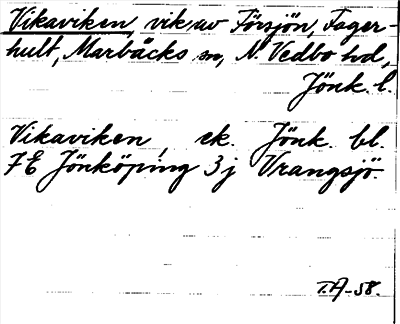 Vikaviken, vik sv Försjön, Fager-
hult, Marbäcks sn, N. Vedbo hd,
Jönk. l.
Vikaviken, ek. Jönk. bl.
7E Jönköping 3j Vrangsjö
T.A-58.